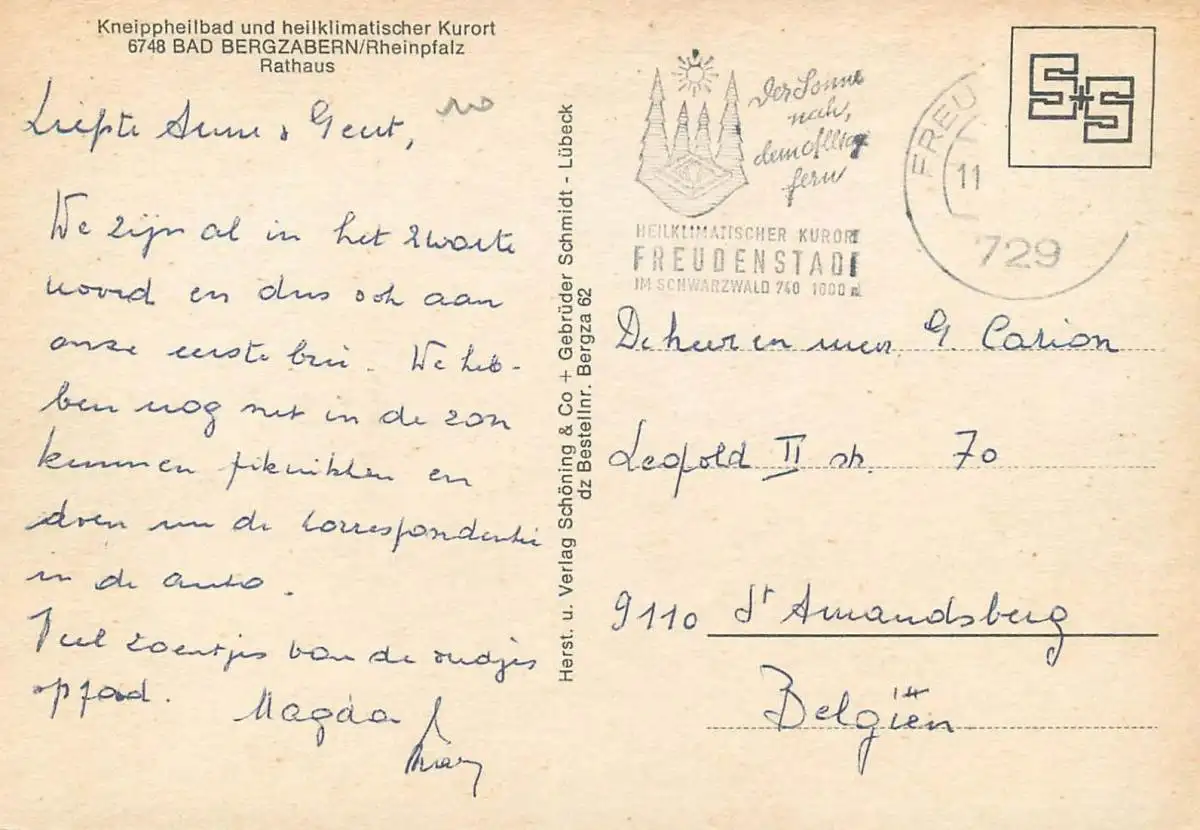 Kneippheilbad und heilklimatischer Kurort
6748 BAD BERGZABERN/Rheinpfalz
Rathaus
Liefste Anne & Geert,
We zijn al in het zwarte
woud en dus ook aan
onze eerste bui. We heb-
ben nog net in de zon
kunnen piknikken en
doen nu de correspondentie
in de auto.
Veel zoentjes van de oudjes
op pad.
Magda &
Herst. u. Verlag Schöning & Co + Gebrüder Schmidt - Lübeck
dz Bestellnr. Bergza 62
Der Sonne
nah,
dem Alltag
fern
HEILKLIMATISCHER KURORT
FREUDENSTADT
IM SCHWARZWALD 740 1000 m
FREU
11
729
S+S
De heer en mevr. G. Carion
Leopold II str. 70
9110 St Amandsberg
Belgiën